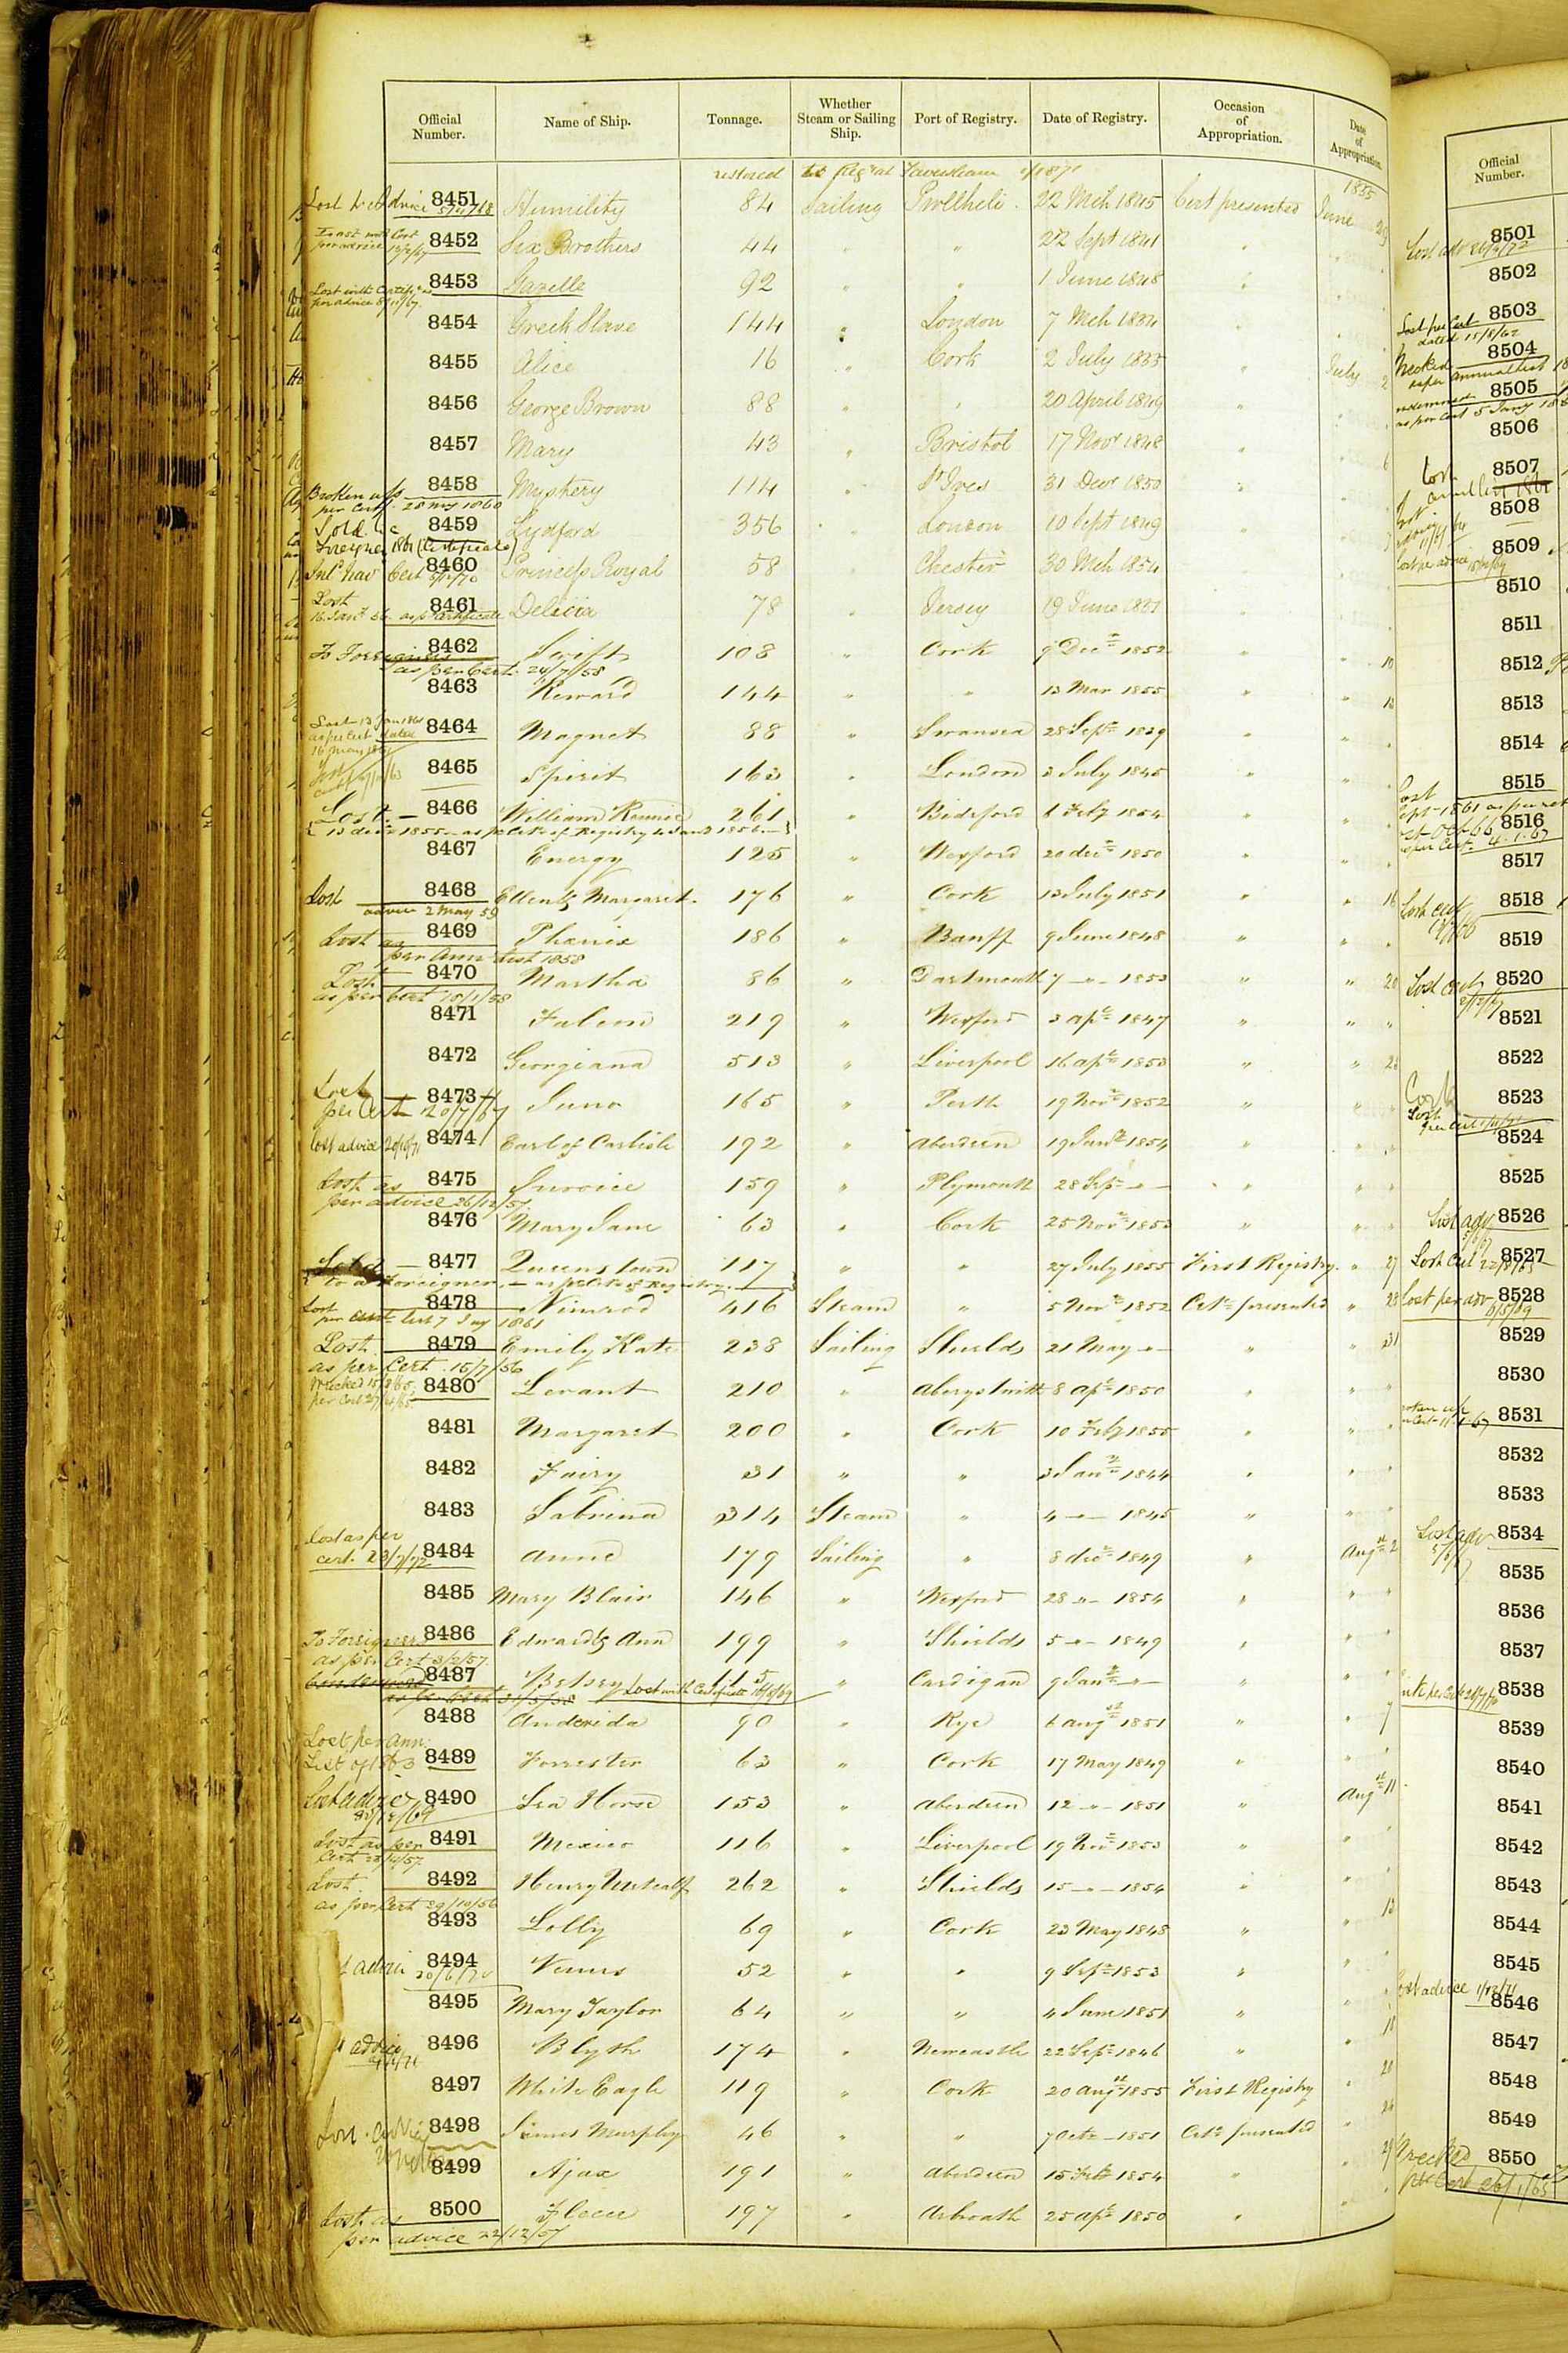 Official Number. Name of Ship. Tonnage. Whether Steam or Sailing Ship. Port of Registry. Date of Registry. Occasion of Appropriation. Date of Appropriation.
restored to Reg at Faversham 1871
1855
8451 Humility 84 Sailing Pwllheli 22 Mch 1845 Cert presented June
8452 Six Brothers 44 " " 22 Sept 1841 "
8453 Gazelle 92 " " 1 June 1848 "
8454 Greek Slave 144 " London 7 Mch 1834 "
8455 Alice 16 " Cork 2 July 1833 " July 2
8456 George Brown 88 " " 20 April 1849 "
8457 Mary 43 " Bristol 17 Novr 1848 " 6
Broken up per Cert. 28 May 1860 8458 Mystery 114 " St Ives 31 Decr 1850 "
Sold to Foreigners 1861 (Certificate) 8459 Lydford 356 " London 10 Sept 1849 "
8460 Princess Royal 58 " Chester 30 Mch 1854 "
Lost as pr Certificate 8461 Delicia 78 " Jersey 19 June 1851 "
To Foreigners as per Cert. 24/7/58 8462 Swift 108 " Cork 9 Decr 1852 " " 10
8463 Reward 144 " " 13 Mar 1855 " "
8464 Magnet 88 " Swansea 28 Sept 1839 " "
8465 Spirit 163 " London 3 July 1845 " "
Lost 8466 William Rennie 261 " Bideford 6 Feby 1854 " "
8467 Energy 125 " Wexford 20 decr 1850 " "
Lost advice 2 May 59 8468 Ellen & Margaret 176 " Cork 12 July 1851 " " 16
Lost as per Ann List 1858 8469 Phœnix 186 " Banff 9 June 1848 " "
Lost as per Cert 15/1/58 8470 Martha 86 " Dartmouth 7 " 1853 " " 20
8471 Falcon 219 " Wexford 3 apl 1847 " " "
8472 Georgiana 513 " Liverpool 16 apl 1853 " "
Lost per Cert 20/7/67 8473 Juno 165 " Perth 19 Novr 1852 " "
Lost advice 8474 Earl of Carlisle 192 " Aberdeen 19 Jany 1854 " "
Lost as per advice 26/12/57 8475 Invoice 159 " Plymouth 28 Sept " " "
8476 Mary Jane 63 " Cork 25 Novr 1853 " "
Sold to a Foreigner, as pr Certe of Registry 8477 Queenstown 117 " " 27 July 1855 First Registry " 27
Lost 1861 8478 Nimrod 416 Steam " 5 Novr 1852 Certe presented " 28
Lost as per Cert. 15/7/56 8479 Emily Kate 238 Sailing Shields 21 May " " " 31
8480 Levant 210 " Aberystwith 8 apl 1850 "
8481 Margaret 200 " Cork 10 Feby 1855 "
8482 Fairy 31 " " 3 Jany 1844 "
8483 Sabrina 314 Steam " 4 " 1845 "
Lost as per cert. 23/7/72 8484 Anne 179 Sailing " 8 decr 1849 " Augst 2
8485 Mary Blair 146 " Wexford 28 " 1854 "
To Foreigners as per Cert 3/2/57 8486 Edward & Ann 199 " Shields 5 " 1849 "
8487 Betsey 115 Lost with Certificate " Cardigan 9 Jany " "
8488 Anderida 90 " Rye 6 augst 1851 " 7
Lost per Ann. List of 1863 8489 Forrester 63 " Cork 17 May 1849 "
Lost advice 8490 Sea Horse 153 " Aberdeen 12 " 1851 " Augst 11
Lost as per Cert 8491 Mexico 116 " Liverpool 19 Novr 1853 "
Lost as per Cert 29/10/56 8492 Henry Metcalf 262 " Shields 15 " 1854 "
8493 Lolly 69 " Cork 23 May 1848 " 13
8494 Venus 52 " " 9 Sept 1853 "
8495 Mary Taylor 64 " " 4 June 1851 "
8496 Blyth 174 " Newcastle 22 Sept 1846 "
8497 White Eagle 119 " Cork 20 Augst 1855 First Registry " 20
8498 James Murphy 46 " " 7 Octr 1851 Certe presented "
8499 Ajax 191 " Aberdeen 15 Feby 1854 "
Lost as per advice 22/12/57 8500 Fleece 197 " Arbroath 25 apl 1850 "
Official Number.
8501
8502
Lost per Cert dated 15/8/62 8503
Wrecked as per Annual List 8504
8505
8506
8507
8508
8509
8510
8511
8512
8513
8514
Lost 8515
8516
8517
Lost cert 8518
8519
Lost cert 8520
8521
8522
8523
8524
8525
Lost adv 8526
Lost Cert 8527
Lost per adv 8528
8529
8530
8531
8532
8533
Lost adv 8534
8535
8536
8537
8538
8539
8540
8541
8542
8543
8544
8545
Lost advice 8546
8547
8548
8549
Wrecked per Cert 8550